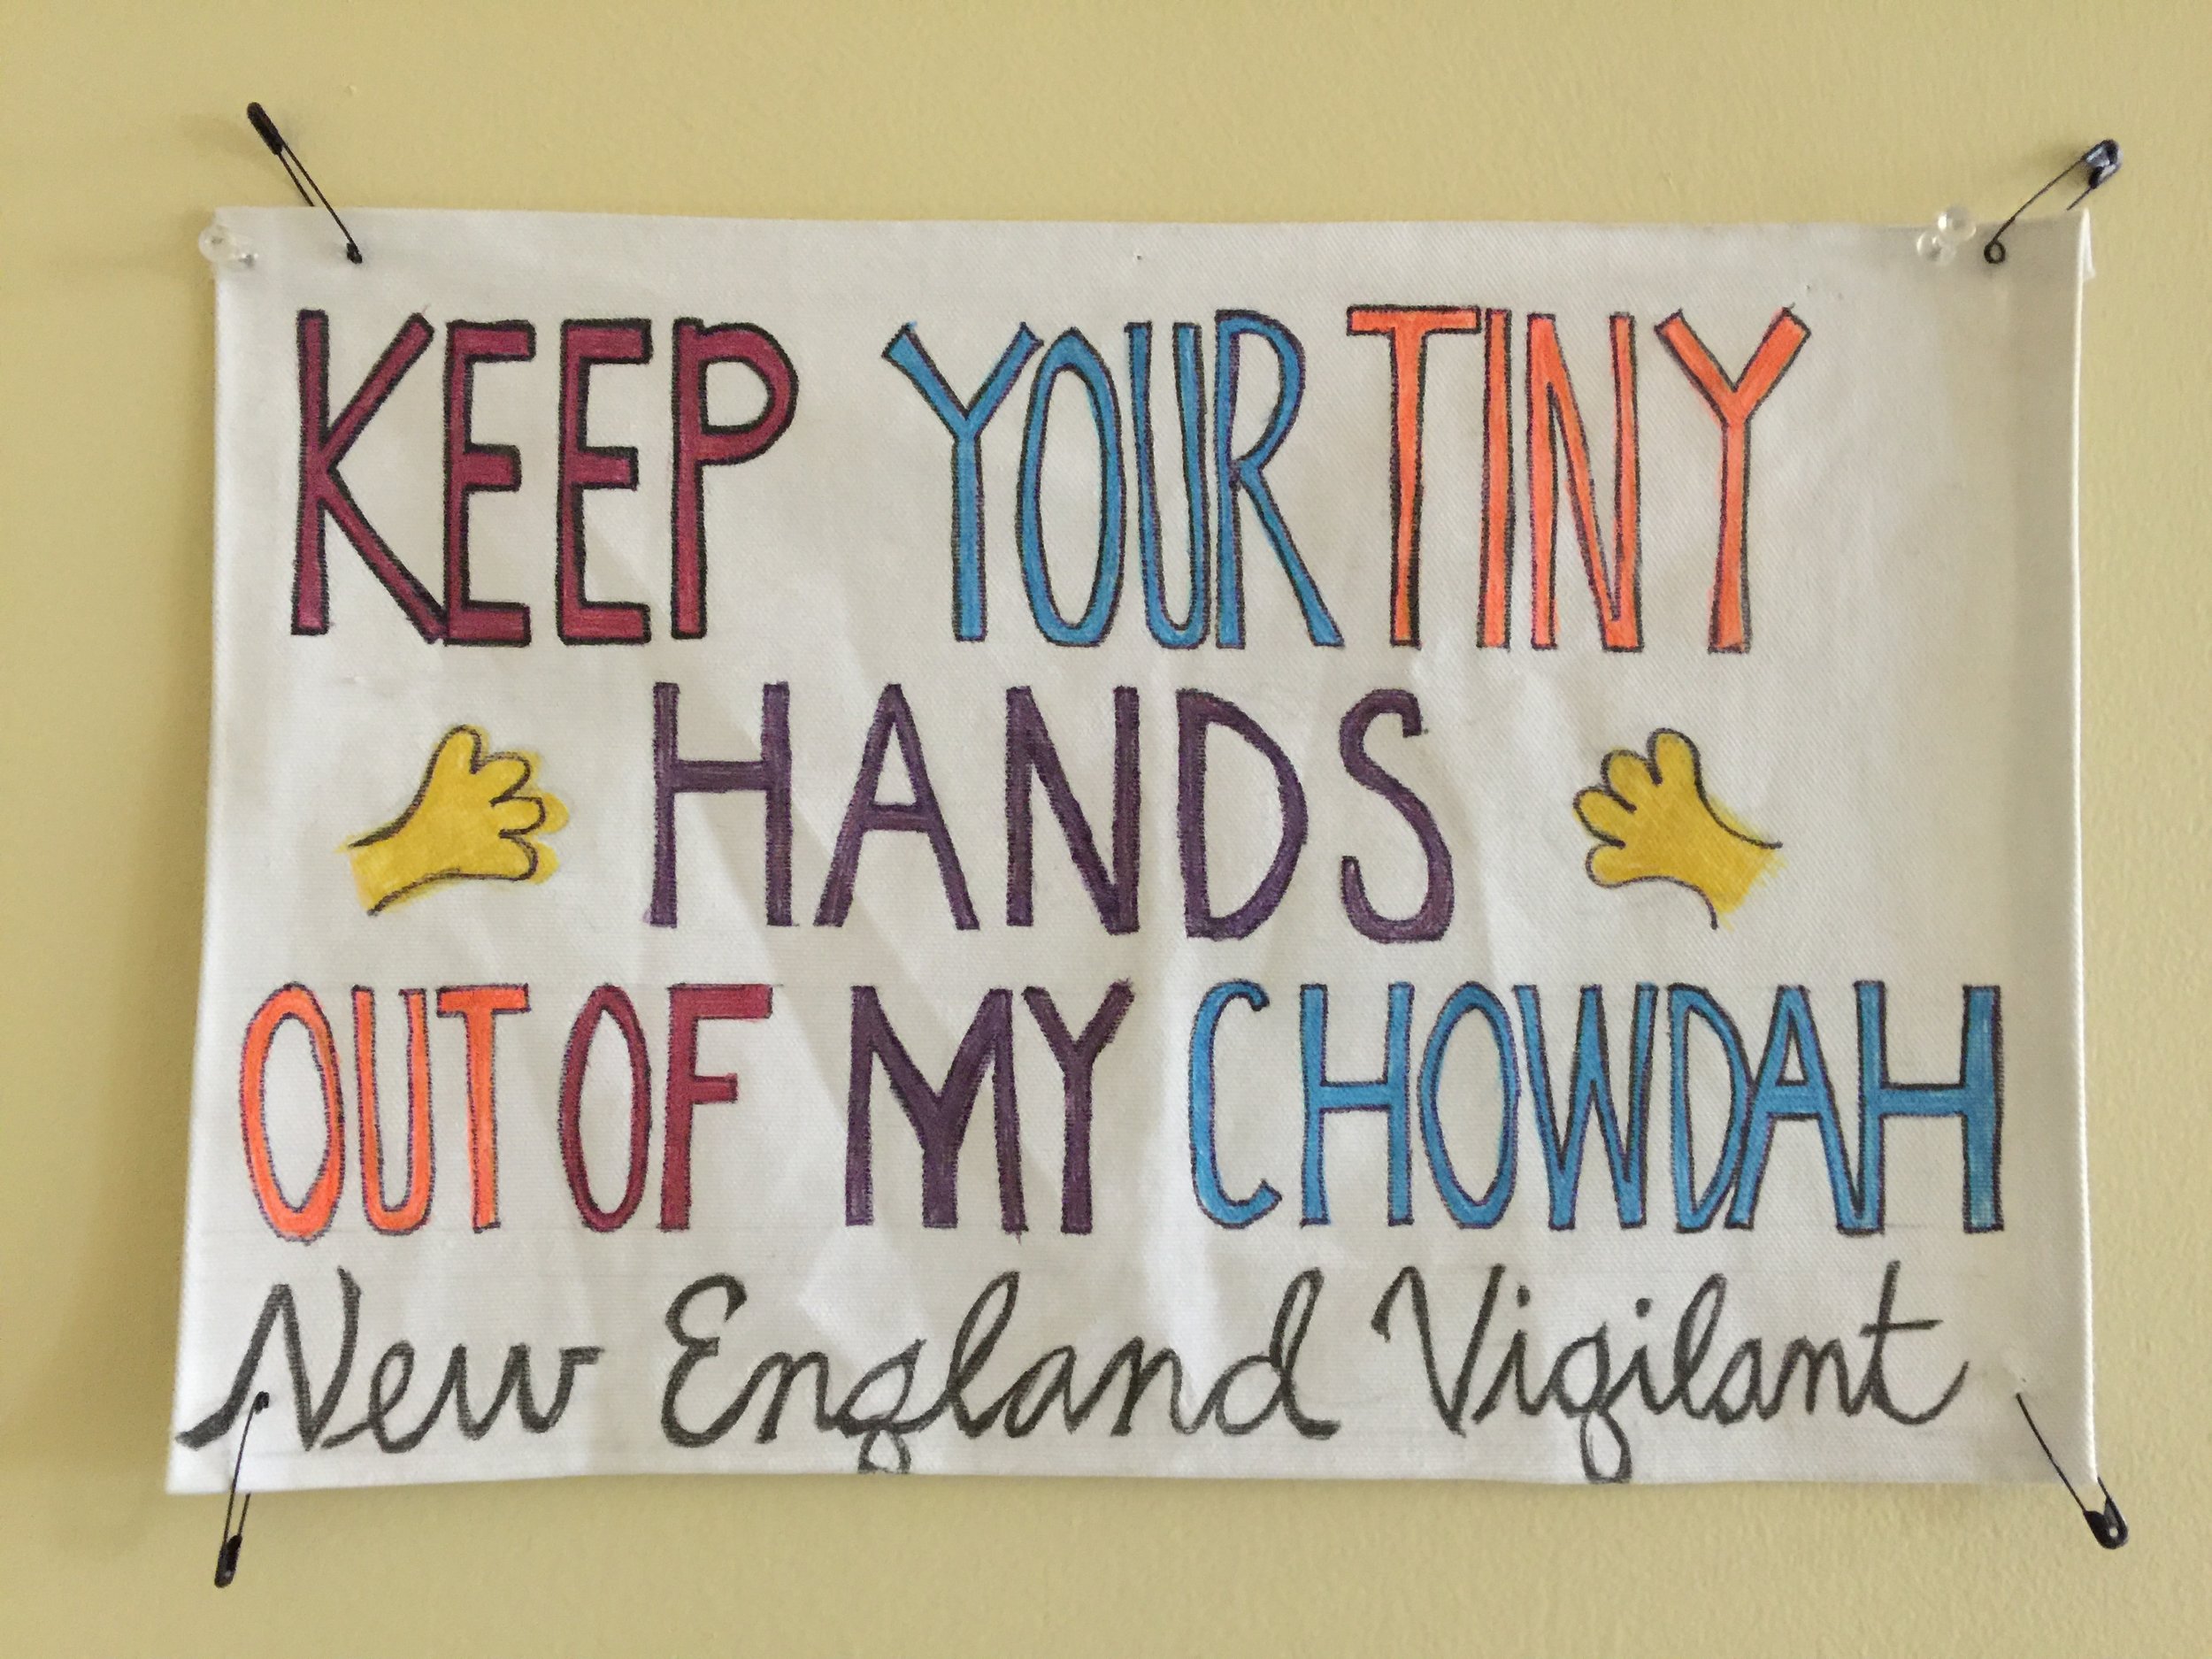 KEEP YOUR TINY
HANDS
OUT OF MY CHOWDAH
New England Vigilant